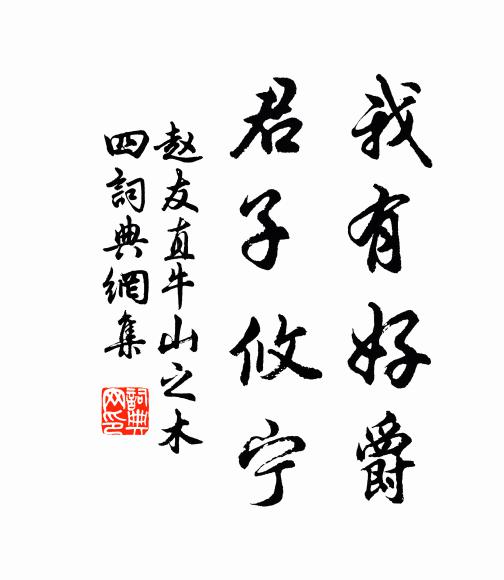 我有好爵
君子攸宁
赵友直牛山之木
四詞典網集
詞典
网印